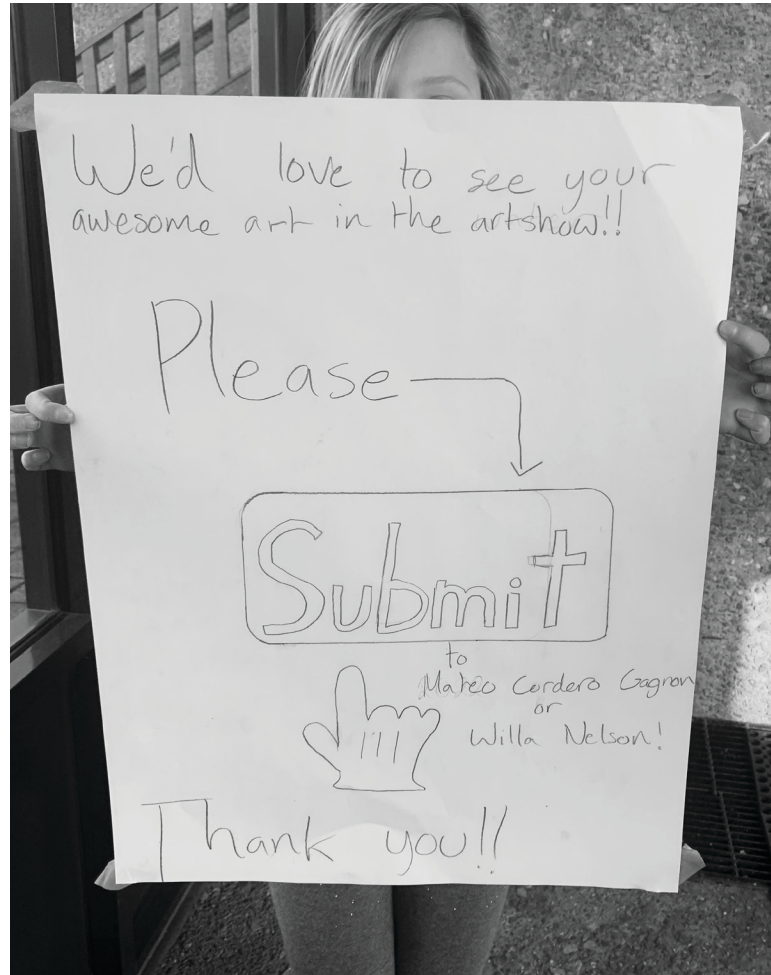 We'd love to see your
awesome art in the artshow!!
Please
Submit
to
Mateo Cordero Gagnon
or
Willa Nelson!
Thank you!!